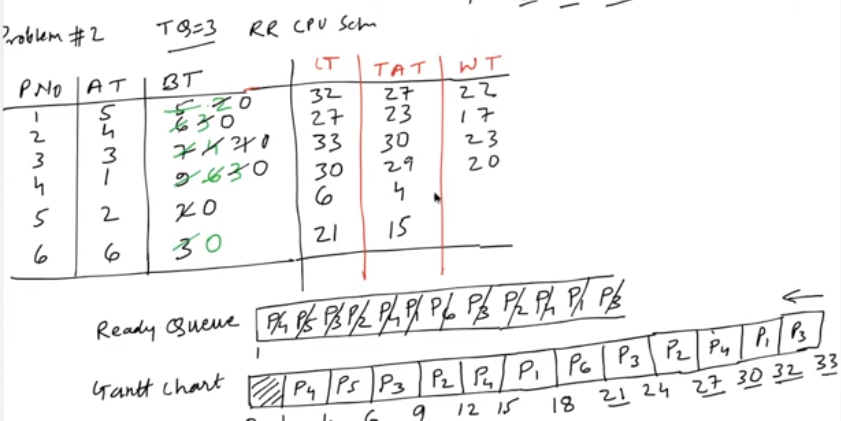 Problem #2 TQ=3 RR CPU Sch
CT TAT WT
P NO AT BT
1 5 5 2 0 32 27 22
2 4 6 3 0 27 23 17
3 3 7 4 1 0 33 30 23
4 1 9 6 3 0 30 29 20
5 2 2 0 6 4
6 6 3 0 21 15
Ready Queue P4 P5 P3 P2 P4 P1 P6 P3 P2 P4 P1 P3
1
Gantt chart P4 P5 P3 P2 P4 P1 P6 P3 P2 P4 P1 P3
6 9 12 15 18 21 24 27 30 32 33